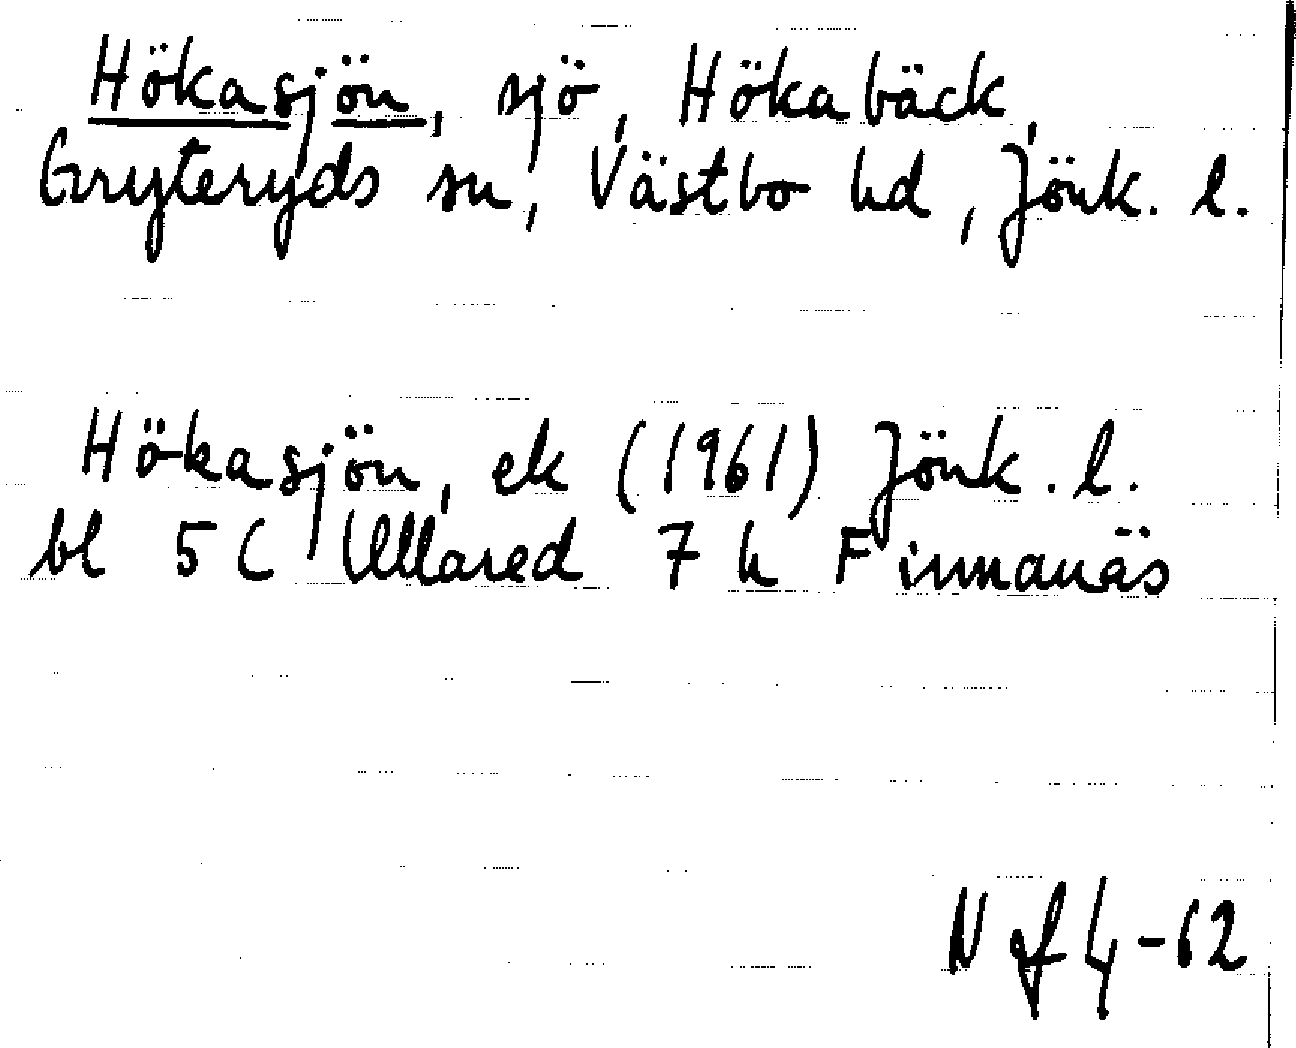 Hökasjön, sjö, Hökabäck,
Gryteryds sn, Västbo hd, Jönk. l.
Hökasjön, ek (1961) Jönk. l.
bl 5C Ullared 7 h Finnanäs
N of 4-62